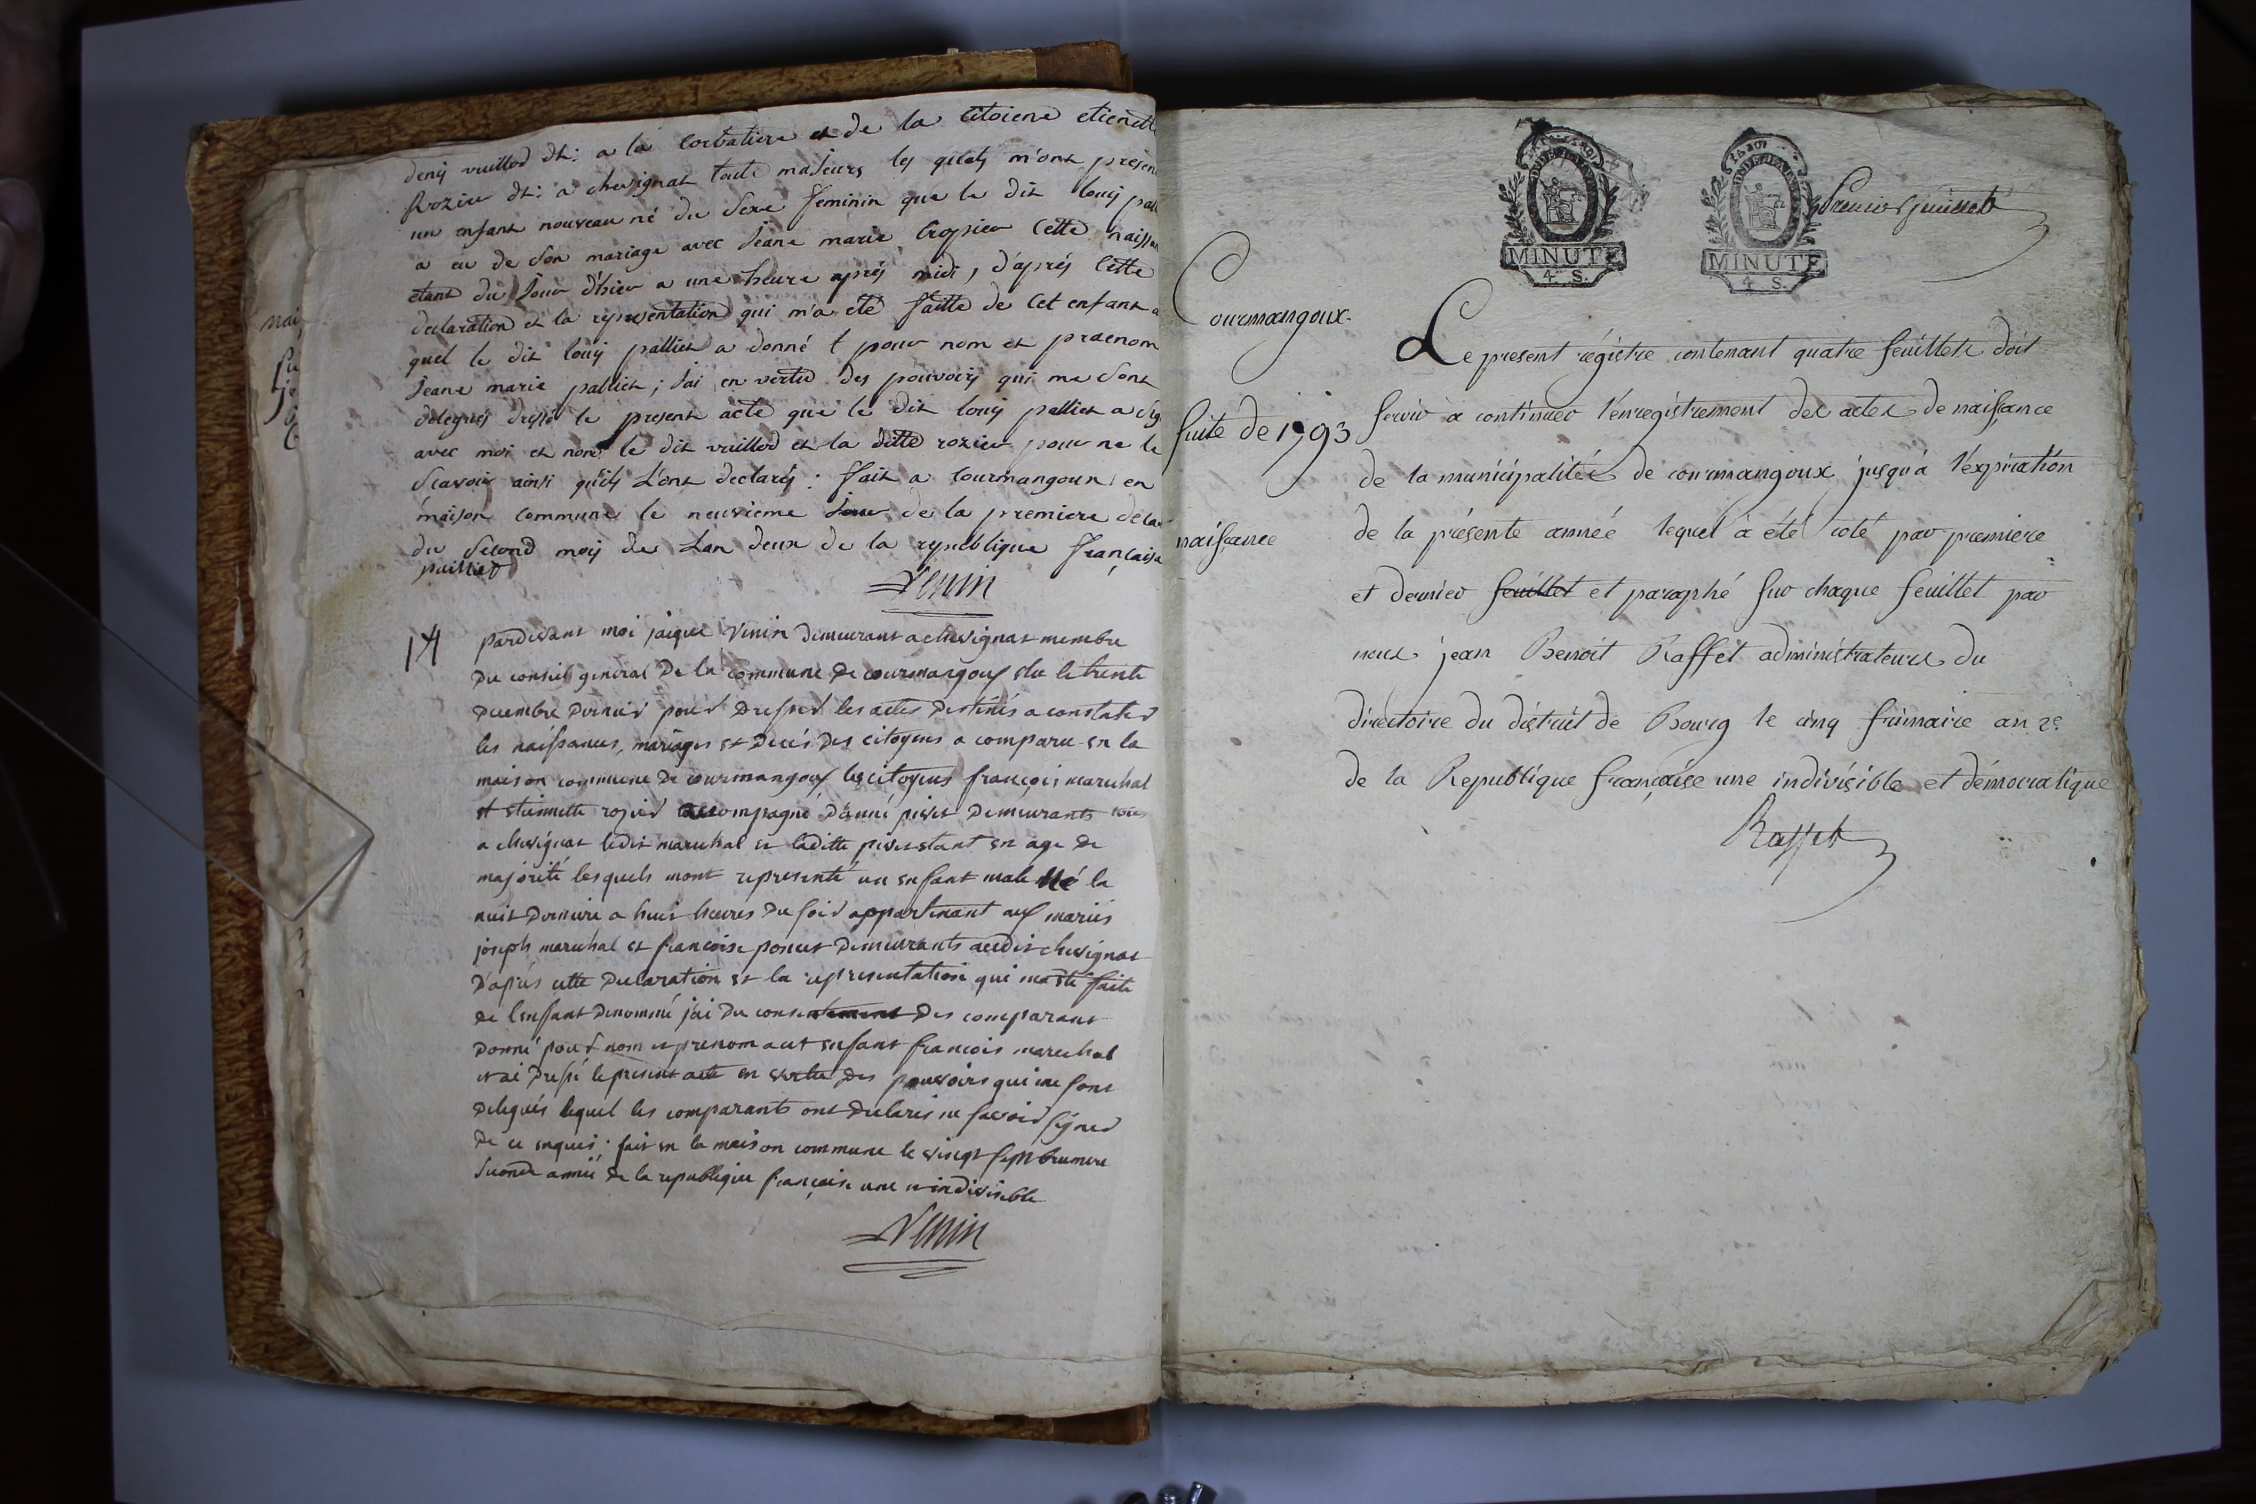 denis vuillod dt: a la Corbatiere et de la Citoiene etienette
Rozier dt: a chevignat toute majeurs les quels m'ont presen
un enfant nouveau né du Sexe feminin que le dit louis pal
a eu de son mariage avec Jeane marie Cropier Cette naissan
etant du Jour d'hier a une heure après midi, d'après Cette
declaration et la representation qui m'a été faitte de Cet enfant a
quel le dit louis palliet a donné t pour nom et praenom
Jeane marie palliet; J'ai en vertu des pouvoirs qui me Sont
delegués dressé le present acte que le dit louis palliet a sig
avec moi et non le dit vuillod et la ditte rozier pour ne le
Scavoir ainsi qu'ils L'ont declarés: fait a Courmangoux en
maison Commune le neuvieme Jour de la premiere decad
du Second mois de Lan deux de la republique françaisse
palliet
Venin
14
pardevant moi jaique Venin demeurant a chevignat membre
du conseil general de la commune de courmangoux elu le trente
decembre dernier pour dresser les actes destinés a constater
les naissances, mariages et decés des citoyens a comparu en la
maison commune de courmangoux les citoyens françois marechal
et etiennette rozier accompagné d'anne pivet demeurants tous
a chevignat ledit marechal et laditte pivet etant en age de
majorité lesquels mont representé un enfant male né la
nuit derniere a huit heures du soir appartenant aux mariés
joseph marechal et francoise poncet demeurants audit chevignat
d'après cette declaration et la representation qui ma été faite
de l'enfant denommé j'ai du consentement des comparant
donné pour nom et prenom a cet enfant francois marechal
et ai dressé le present acte en vertu des pouvoirs qui me sont
delegués lequel les comparants ont declarés ne savoir signer
de ce enquis; fait en la maison commune le vingt sept brumere
seconde année de la republique française une et indivisible
Venin
MINUTE
4 S.
MINUTE
4 S.
Premier feuillet
Courmangoux.
suite de 1793
naissance
Le present régistre contenant quatre feuillets doit
servir a continuer l'enregistrement des actes de naissance
de la municipalitée de courmangoux jusqu'a l'expiration
de la présente année lequel a été coté par premiere
et dernier feuillet et paraphé sur chaque feuillet par
nous jean Benoit Raffet administrateurs du
directoire du district de Bourg le cinq frimaire an 2e.
de la Republique française une indivisible et démocratique
Raffet